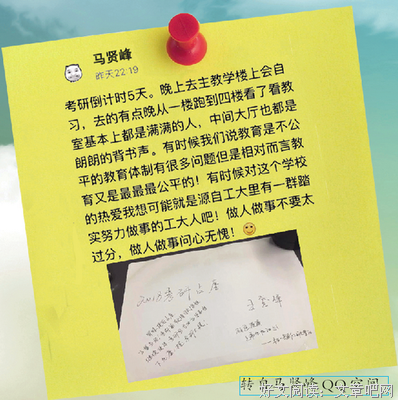 马贤峰
昨天22:19
考研倒计时5天。晚上去主教学楼上会自
习，去的有点晚从一楼跑到四楼看了看教
室基本上都是满满的人，中间大厅也都是
朗朗的背书声。有时候我们说教育是不公
平的教育体制有很多问题但是相对而言教
育又是最最最公平的！有时候对这个学校
的热爱我想可能就是源自工大里有一群踏
实努力做事的工大人吧！做人做事不要太
过分，做人做事问心无愧！
转自马贤峰QQ空间
好文阅读：文章吧网